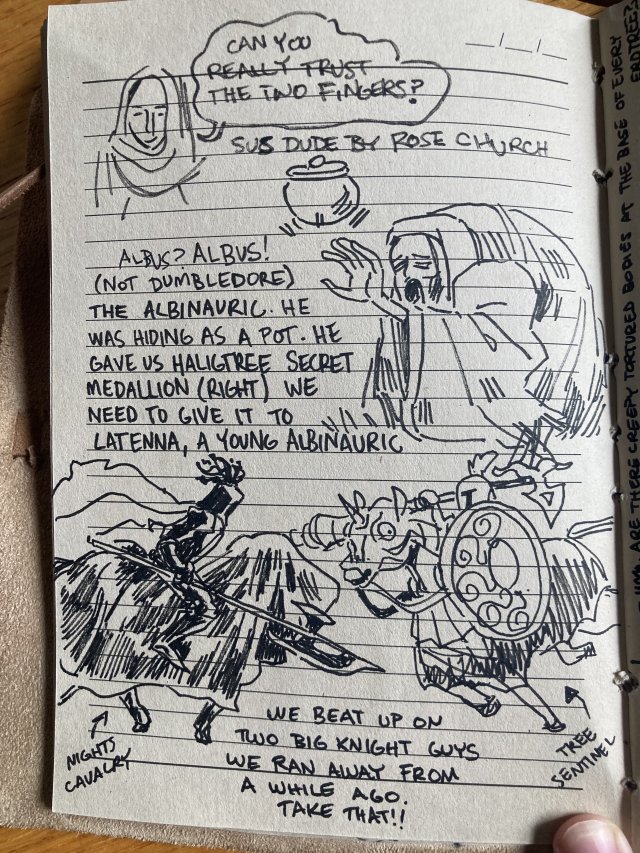 CAN YOU
REALLY TRUST
THE TWO FINGERS?
SUS DUDE BY ROSE CHURCH
ALBUS? ALBUS!
(NOT DUMBLEDORE)
THE ALBINAURIC. HE
WAS HIDING AS A POT. HE
GAVE US HALIGTREE SECRET
MEDALLION (RIGHT) WE
NEED TO GIVE IT TO
LATENNA, A YOUNG ALBINAURIC
NIGHTS
CAVALRY
WE BEAT UP ON
TWO BIG KNIGHT GUYS
WE RAN AWAY FROM
A WHILE AGO.
TAKE THAT!!
TREE
SENTINEL
ARE THERE CREEPY TORTURED BODIES AT THE BASE OF EVERY